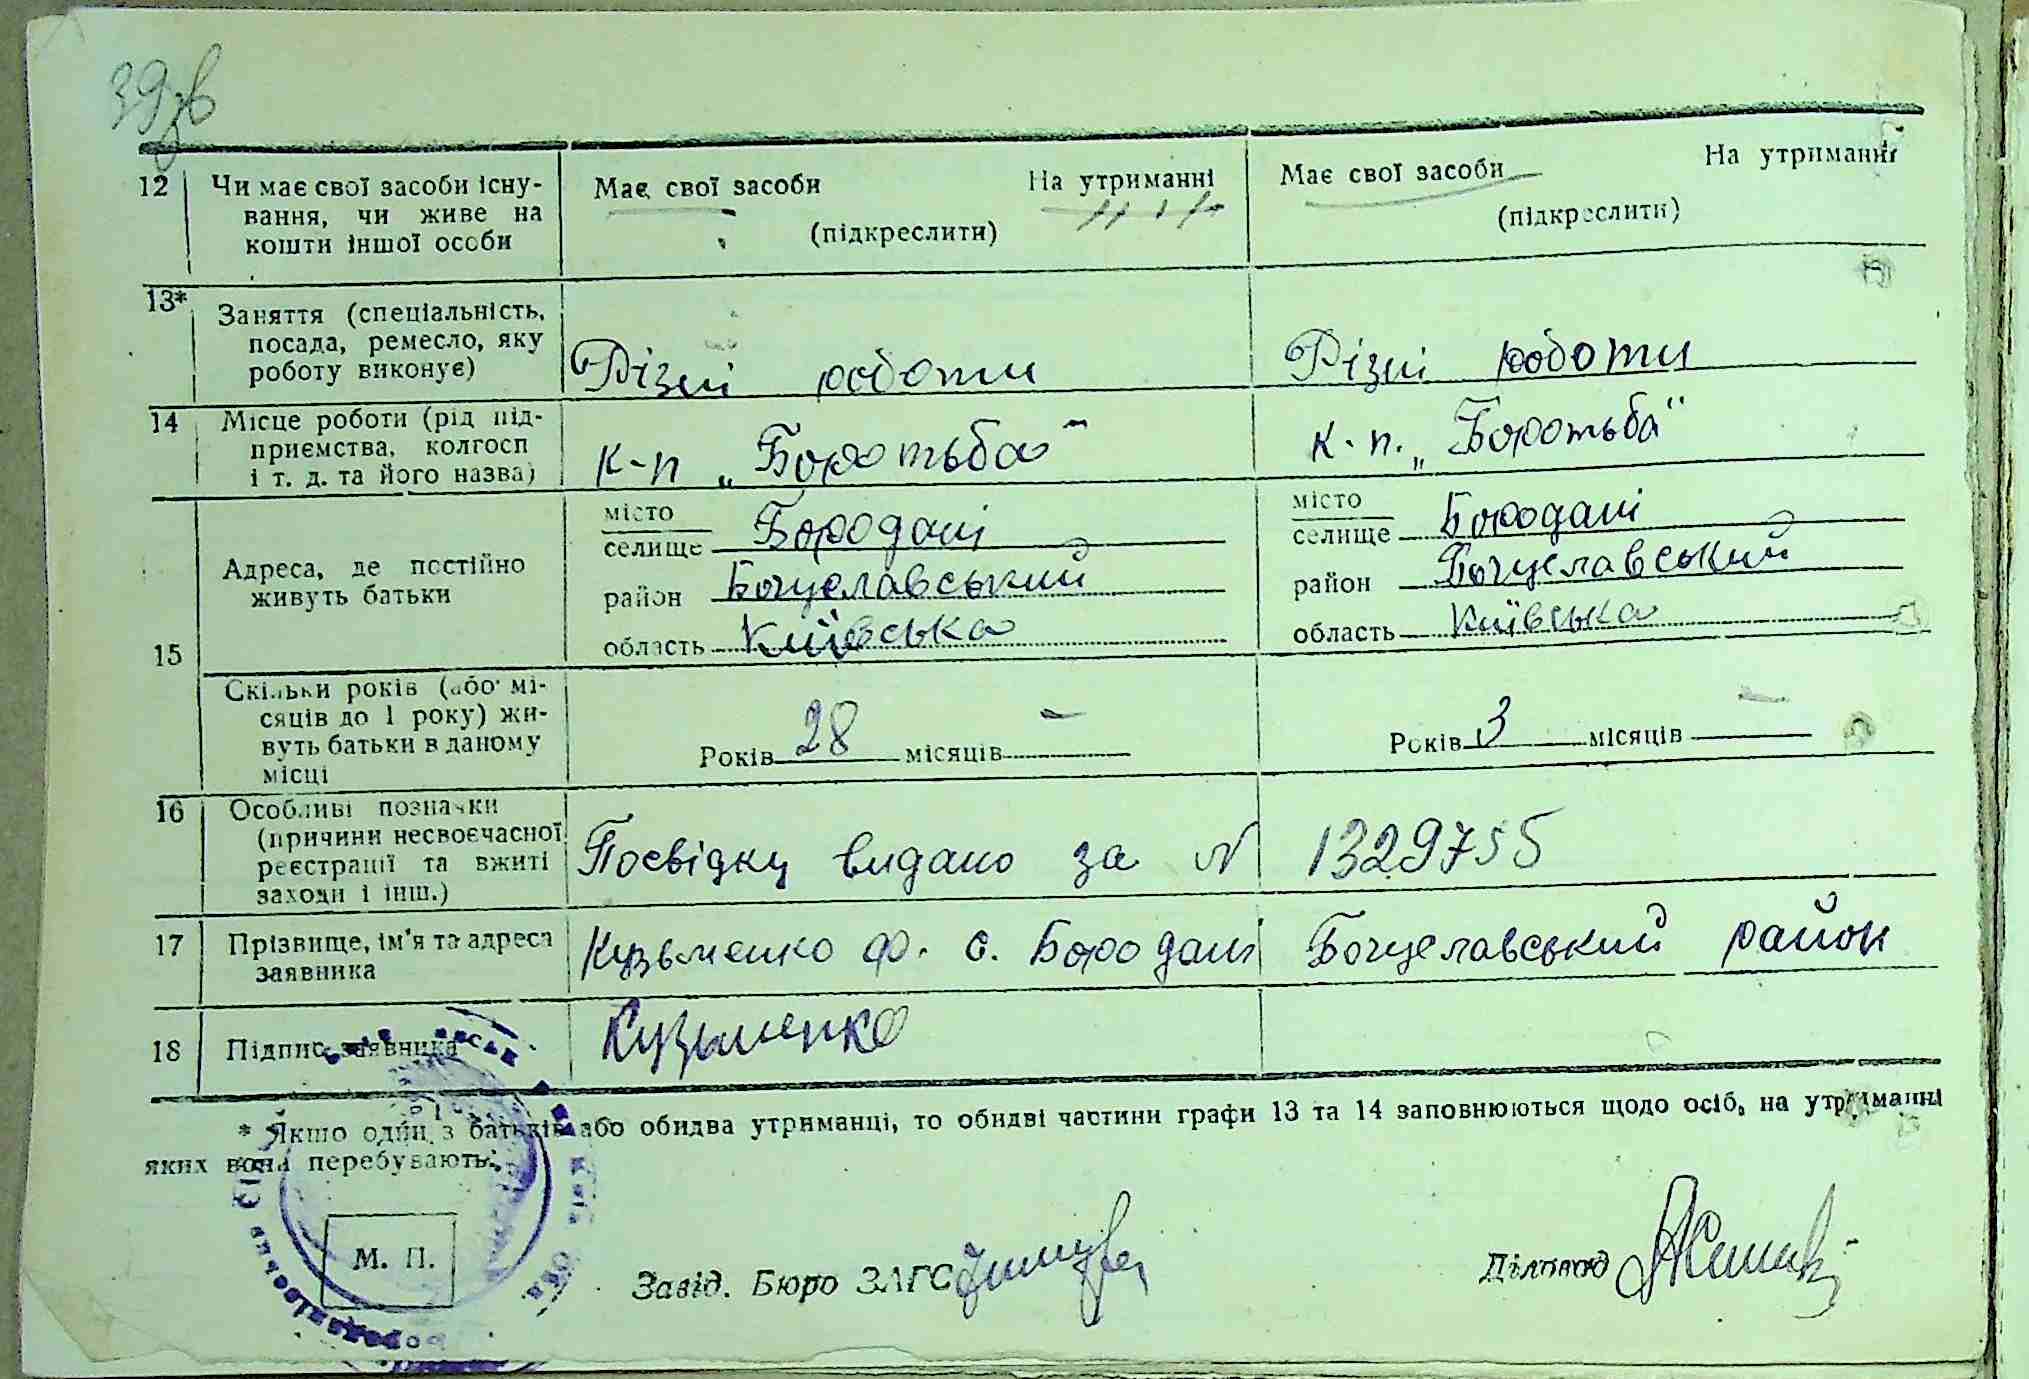 39зв
12 Чи має свої засоби існу-
вання, чи живе на
кошти іншої особи
Має свої засоби На утриманні
(підкреслити)
Має свої засоби На утриманні
(підкреслити)
13* Заняття (спеціальність,
посада, ремесло, яку
роботу виконує)
Різні роботи
Різні роботи
14 Місце роботи (рід під-
приємства, колгосп
і т. д. та його назва)
к-п „Боротьба"
к-п. „Боротьба"
15
Адреса, де постійно
живуть батьки
місто
селище Бородані
район Богуславський
область Київська
місто
селище Бородані
район Богуславський
область Київська
Скільки років (або мі-
сяців до 1 року) жи-
вуть батьки в даному
місці
Років 28 місяців —
Років 3 місяців —
16 Особливі позначки
(причини несвоєчасної
реєстрації та вжиті
заходи і інш.)
Посвідку видано за № 1329755
17 Прізвище, ім'я та адреса
заявника
Кузьменко Ф. с. Бородані Богуславський район
18 Підпис заявника
Кузьменко
* Якщо один з батьків або обидва утриманці, то обидві частини графи 13 та 14 заповнюються щодо осіб, на утриманні
яких вони перебувають.
М. П.
Завід. Бюро ЗАГС
Діловод